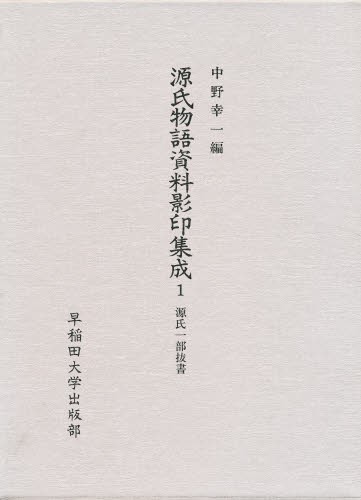 中野幸一編
源氏物語資料影印集成 1 源氏一部抜書
早稲田大学出版部